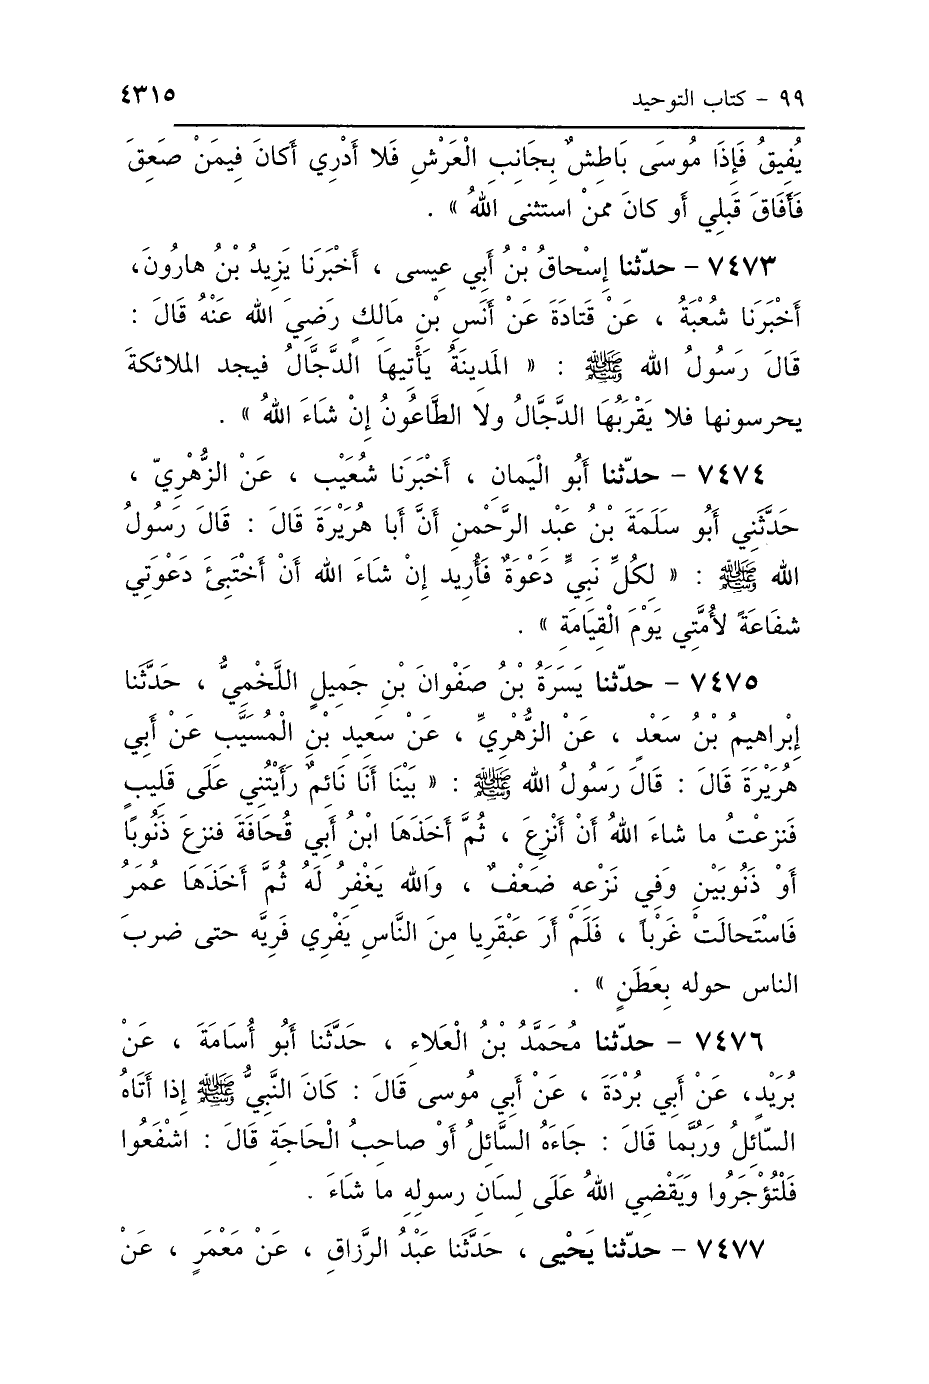 ٩٩ - كتاب التوحيد ٤٣١٥
يُفِيقُ فَإِذَا مُوسَى بَاطِشٌ بِجَانِبِ الْعَرْشِ فَلا أَدْرِي أَكانَ فِيمَنْ صَعِقَ
فَأَفَاقَ قَبلِي أَو كانَ ممنْ استثنى اللهُ » .
٧٤٧٣ - حدّثنا إسْحاقُ بْنُ أَبي عِيسى ، أَخْبَرَنا يَزِيدُ بْنُ هارُونَ،
أَخْبَرَنَا شُعْبَةُ ، عَنْ قَتادَةَ عَنْ أَنَسِ بْنِ مَالِكٍ رَضِيَ الله عَنْهُ قَالَ :
قَالَ رَسُولُ الله ﷺ : « المَدِينَةُ يَأْتِيهَا الدَّجَّالُ فيجد الملائكةَ
يحرسونها فلا يَقْرَبُهَا الدَّجَّالُ ولا الطَّاعُونُ إنْ شاءَ اللهُ » .
٧٤٧٤ - حدّثنا أَبُو الْيَمانِ ، أَخْبَرَنا شُعَيْب ، عَنْ الزُّهْرِيّ ،
حَدَّثَنِي أَبُو سَلَمَةَ بْنُ عَبْدِ الرَّحْمنِ أَنَّ أَبا هُرَيْرَةَ قَالَ : قَالَ رَسُولُ
الله ﷺ : « لِكُلِّ نَبِيٍّ دَعْوَةٌ فَأُرِيد إنْ شاءَ الله أَنْ أَخْتَبِئَ دَعْوَتِي
شفَاعَةً لأُمَّتِي يَوْمَ الْقِيَامَةِ » .
٧٤٧٥ - حدّثنا يَسَرَةُ بْنُ صَفْوانَ بْنِ جَمِيلٍ اللَّخْمِيُّ ، حَدَّثَنا
إبْراهِيمُ بْنُ سَعْدٍ ، عَنْ الزُّهْرِيِّ ، عَنْ سَعِيدِ بْنِ الْمُسَيَّبِ عَنْ أَبي
هُرَيْرَةَ قَالَ : قَالَ رَسُولُ الله ﷺ : « بَيْنَا أَنَا نَائِمٌ رَأَيْتُنِي عَلَى قَلِيبٍ
فَنزعْتُ ما شاءَ اللهُ أَنْ أَنْزِعَ ، ثُمَّ أَخذَهَا ابْنُ أَبي قُحَافَةَ فنزعَ ذَنُوبًا
أَوْ ذَنُوبَيْنِ وَفِي نَزْعِهِ ضَعْفٌ ، وَالله يَغْفِرُ لَهُ ثُمَّ أَخَذَهَا عُمَرُ
فَاسْتَحالَتْ غَرْباً ، فَلَمْ أَرَ عَبْقَرِيا مِنَ النَّاسِ يَفْرِي فَرِيَّه حتى ضربَ
الناس حوله بِعَطَنٍ » .
٧٤٧٦ - حدّثنا مُحَمَّدُ بْنُ الْعَلاءِ ، حَدَّثَنا أَبُو أُسَامَةَ ، عَنْ
بُرَيْدٍ، عَنْ أَبي بُرْدَةَ ، عَنْ أَبي مُوسى قَالَ : كَانَ النَّبِيُّ ﷺ إذا أَتَاهُ
السّائِلُ وَرُبَّما قَالَ : جَاءَهُ السَّائِلُ أَوْ صاحِبُ الْحَاجَةِ قَالَ : اشْفَعُوا
فَلْتُؤْجَرُوا وَيَقْضِي اللهُ عَلَى لِسَانِ رسولِهِ ما شَاءَ .
٧٤٧٧ - حدّثنا يَحْيى ، حَدَّثَنا عَبْدُ الرَّزاقِ ، عَنْ مَعْمَرٍ ، عَنْ